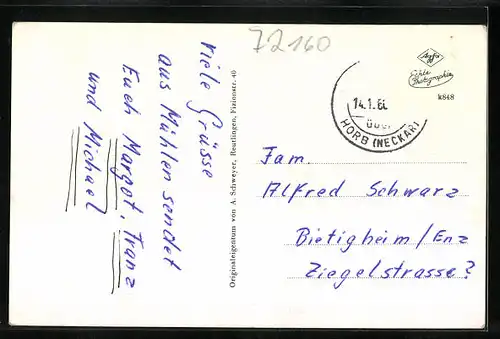 72160
Viele Grüsse
aus Mühlen sendet
Euch Margot, Franz
und Michael
Originaleigentum von A. Schweyer, Reutlingen, Fizionstr. 40
Agfa
Echte
Photographie
k848
14.1.6
über
HORB (NECKAR)
Fam.
Alfred Schwarz
Bietigheim/Enz
Ziegelstrasse?